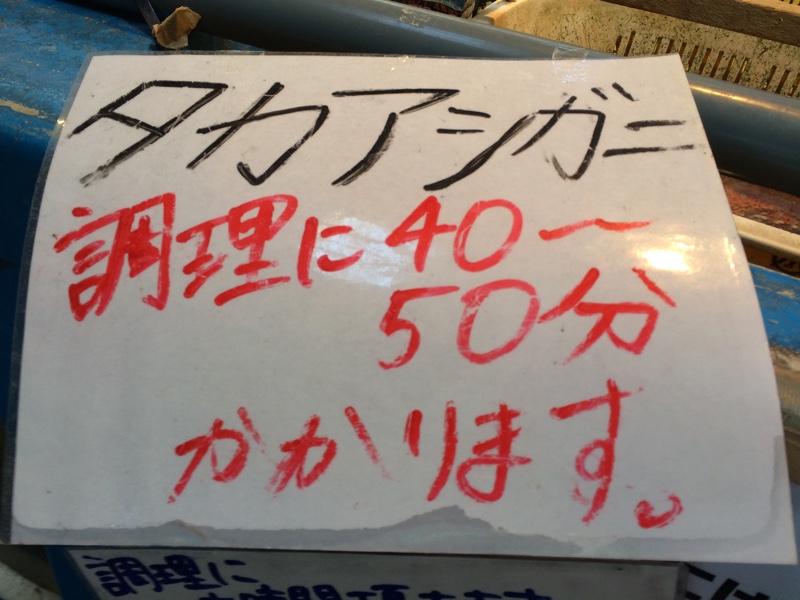 タカアシガニ
調理に40〜
50分
かかります。
調理に